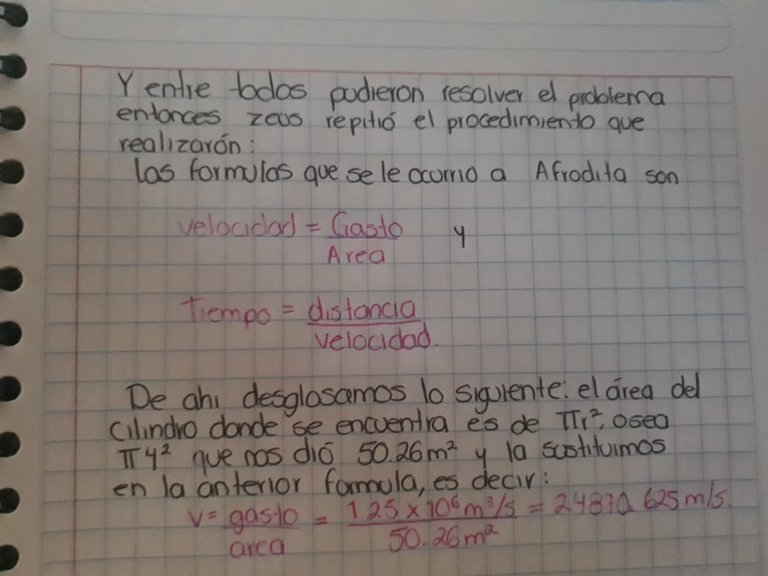 Y entre todos pudieron resolver el problema
entonces zeus repitió el procedimiento que
realizarón:
Las formulas que se le ocurrio a Afrodita son
velocidad = Gasto y
Area
Tiempo = distancia
velocidad.
De ahi desglosamos lo siguiente: el área del
cilindro donde se encuentra es de πr², osea
π4² que nos dió 50.26m² y la sustituimos
en la anterior formula, es decir:
v= gasto = 1.25 x 10⁶ m³/s = 24870.625 m/s.
area 50.26m²